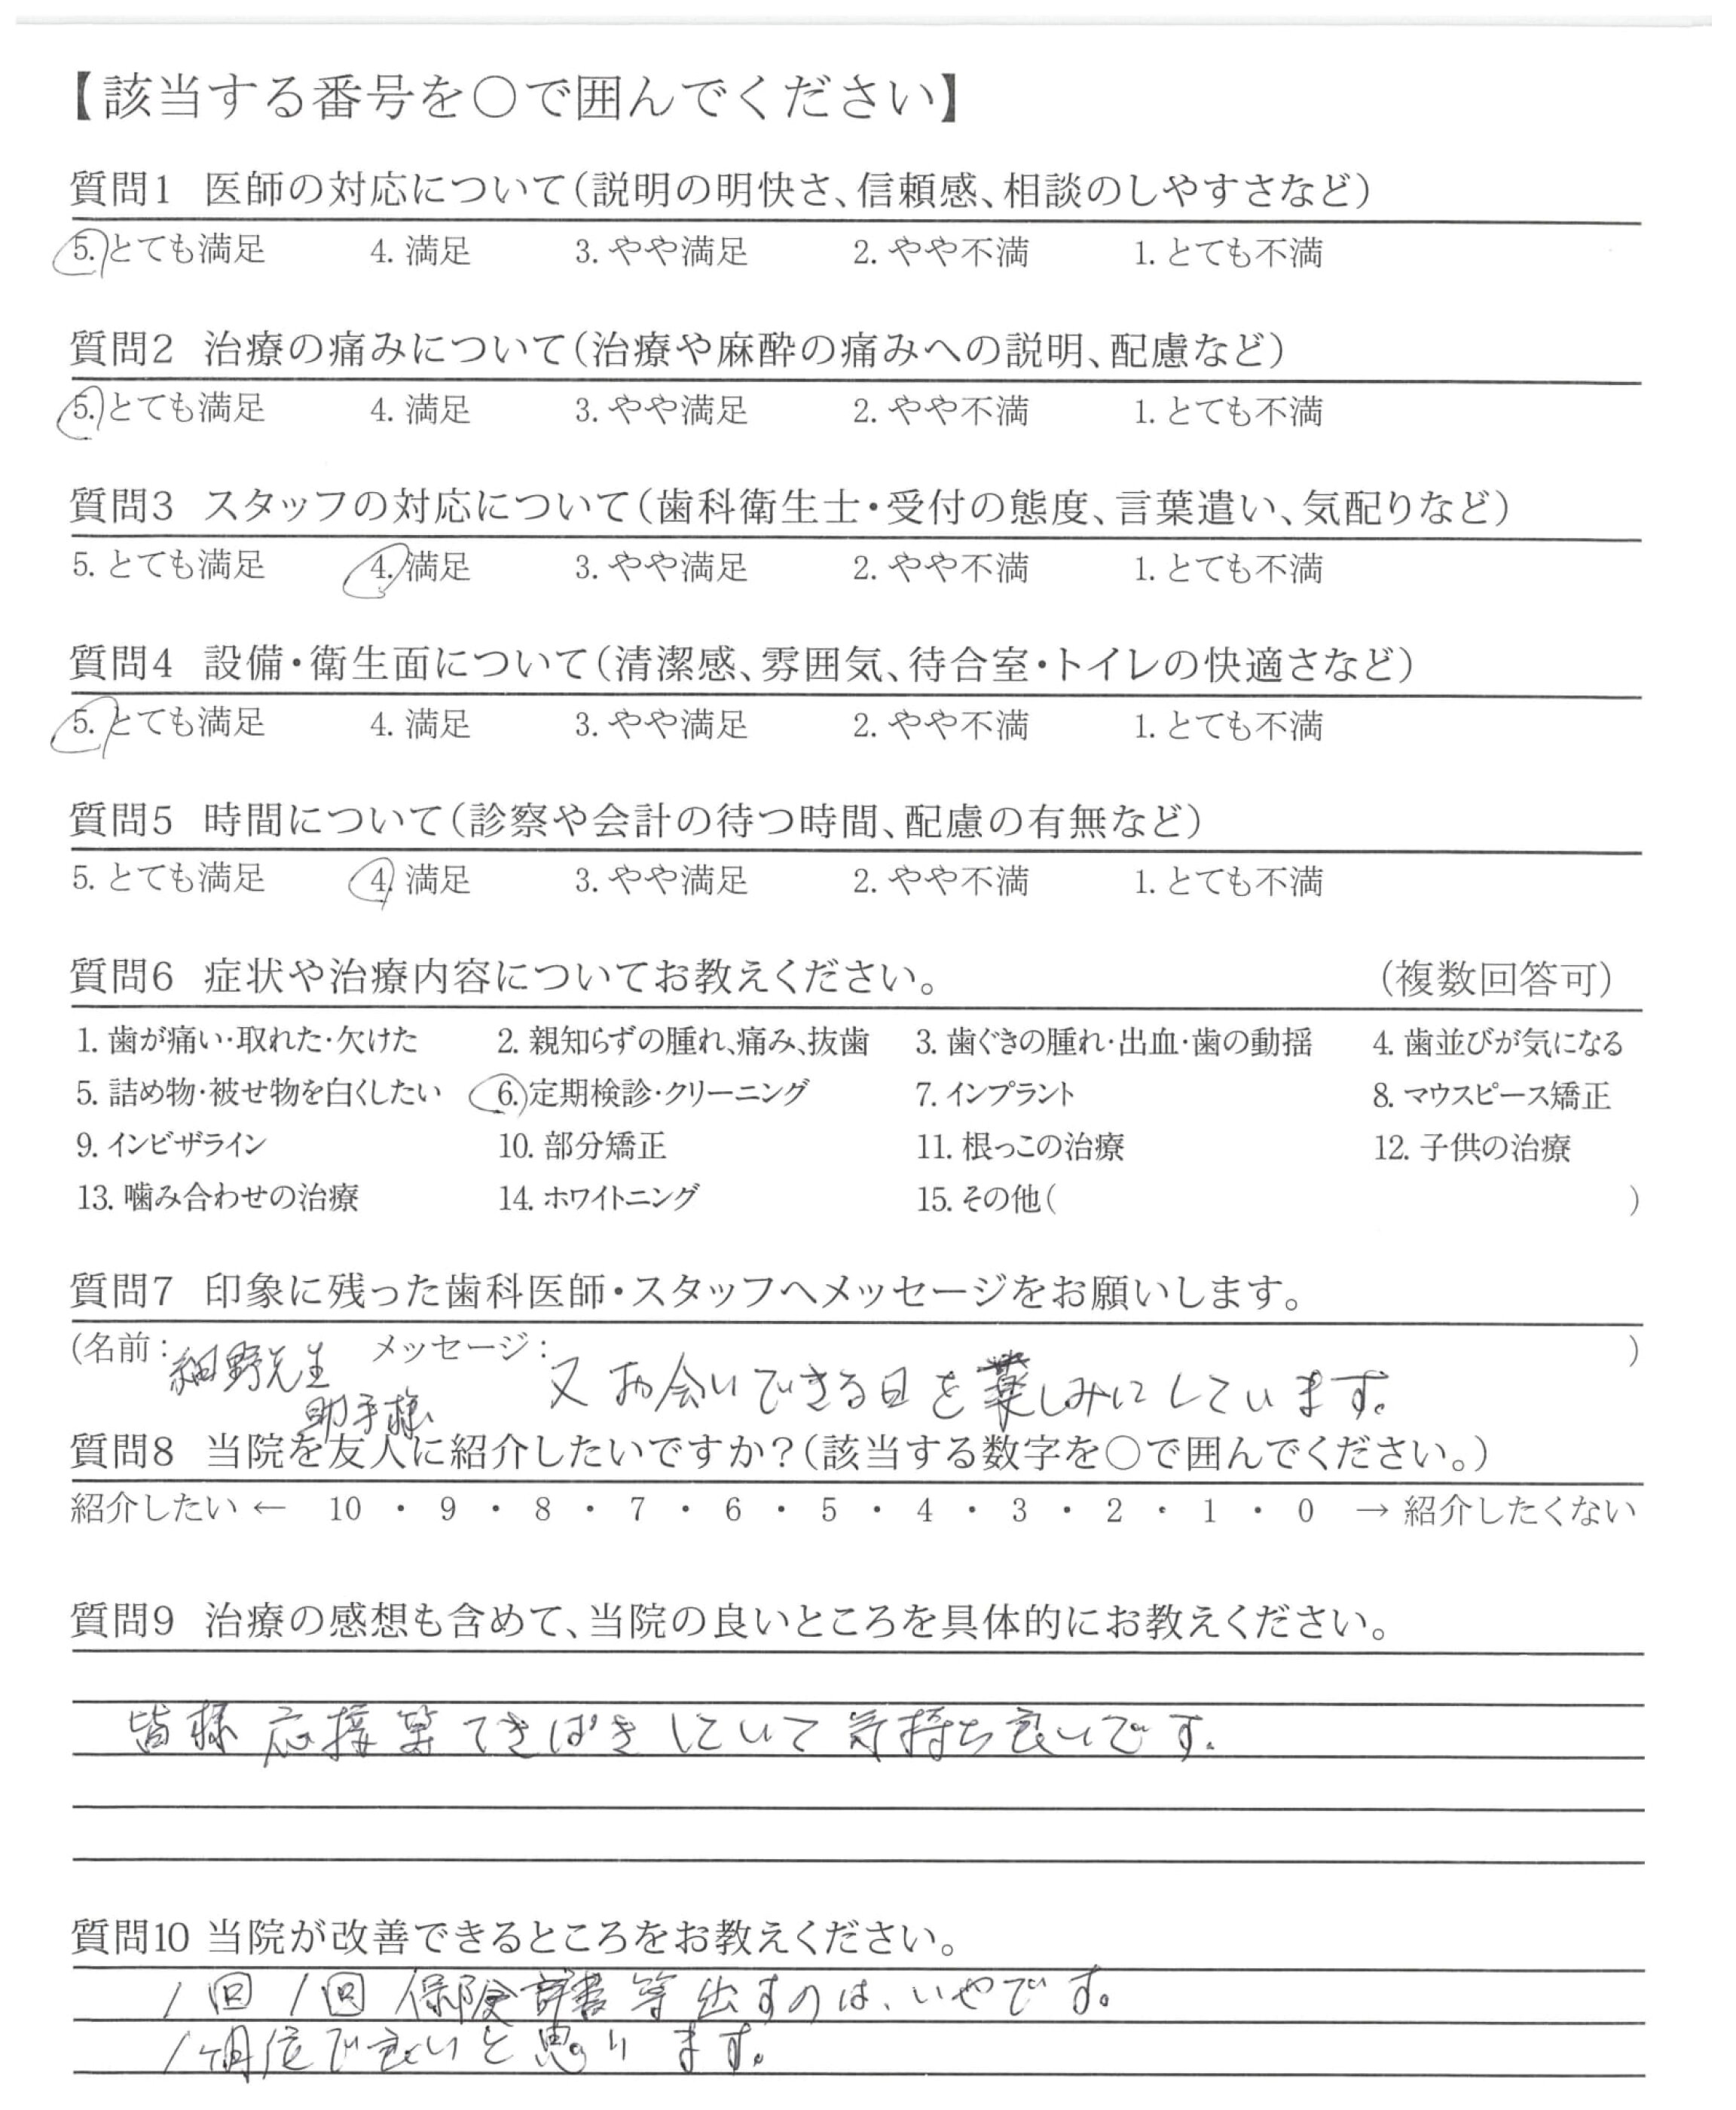 【該当する番号を○で囲んでください】
質問1 医師の対応について(説明の明快さ、信頼感、相談のしやすさなど)
5. とても満足 4. 満足 3. やや満足 2. やや不満 1. とても不満
質問2 治療の痛みについて(治療や麻酔の痛みへの説明、配慮など)
5. とても満足 4. 満足 3. やや満足 2. やや不満 1. とても不満
質問3 スタッフの対応について(歯科衛生士・受付の態度、言葉遣い、気配りなど)
5. とても満足 4. 満足 3. やや満足 2. やや不満 1. とても不満
質問4 設備・衛生面について(清潔感、雰囲気、待合室・トイレの快適さなど)
5. とても満足 4. 満足 3. やや満足 2. やや不満 1. とても不満
質問5 時間について(診察や会計の待つ時間、配慮の有無など)
5. とても満足 4. 満足 3. やや満足 2. やや不満 1. とても不満
質問6 症状や治療内容についてお教えください。 (複数回答可)
1. 歯が痛い・取れた・欠けた 2. 親知らずの腫れ、痛み、抜歯 3. 歯ぐきの腫れ・出血・歯の動揺 4. 歯並びが気になる
5. 詰め物・被せ物を白くしたい 6. 定期検診・クリーニング 7. インプラント 8. マウスピース矯正
9. インビザライン 10. 部分矯正 11. 根っこの治療 12. 子供の治療
13. 噛み合わせの治療 14. ホワイトニング 15. その他( )
質問7 印象に残った歯科医師・スタッフへメッセージをお願いします。
(名前：細野先生 メッセージ：又お会いできる日を楽しみにしています。 )
助手様
質問8 当院を友人に紹介したいですか？(該当する数字を○で囲んでください。)
紹介したい ← 10 ・ 9 ・ 8 ・ 7 ・ 6 ・ 5 ・ 4 ・ 3 ・ 2 ・ 1 ・ 0 → 紹介したくない
質問9 治療の感想も含めて、当院の良いところを具体的にお教えください。
皆様 応接等てきぱきしていて気持ち良いです.
質問10 当院が改善できるところをお教えください。
1回1回保険証書等出すのは、いやです。
1ヶ月位で良いと思います。